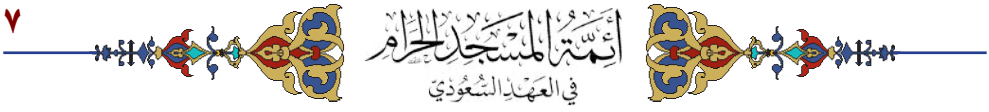 ٧
أَئِمَّةُ المَسْجِدِ الحَرَامِ
فِي العَهْدِ السُّعُودِيِّ